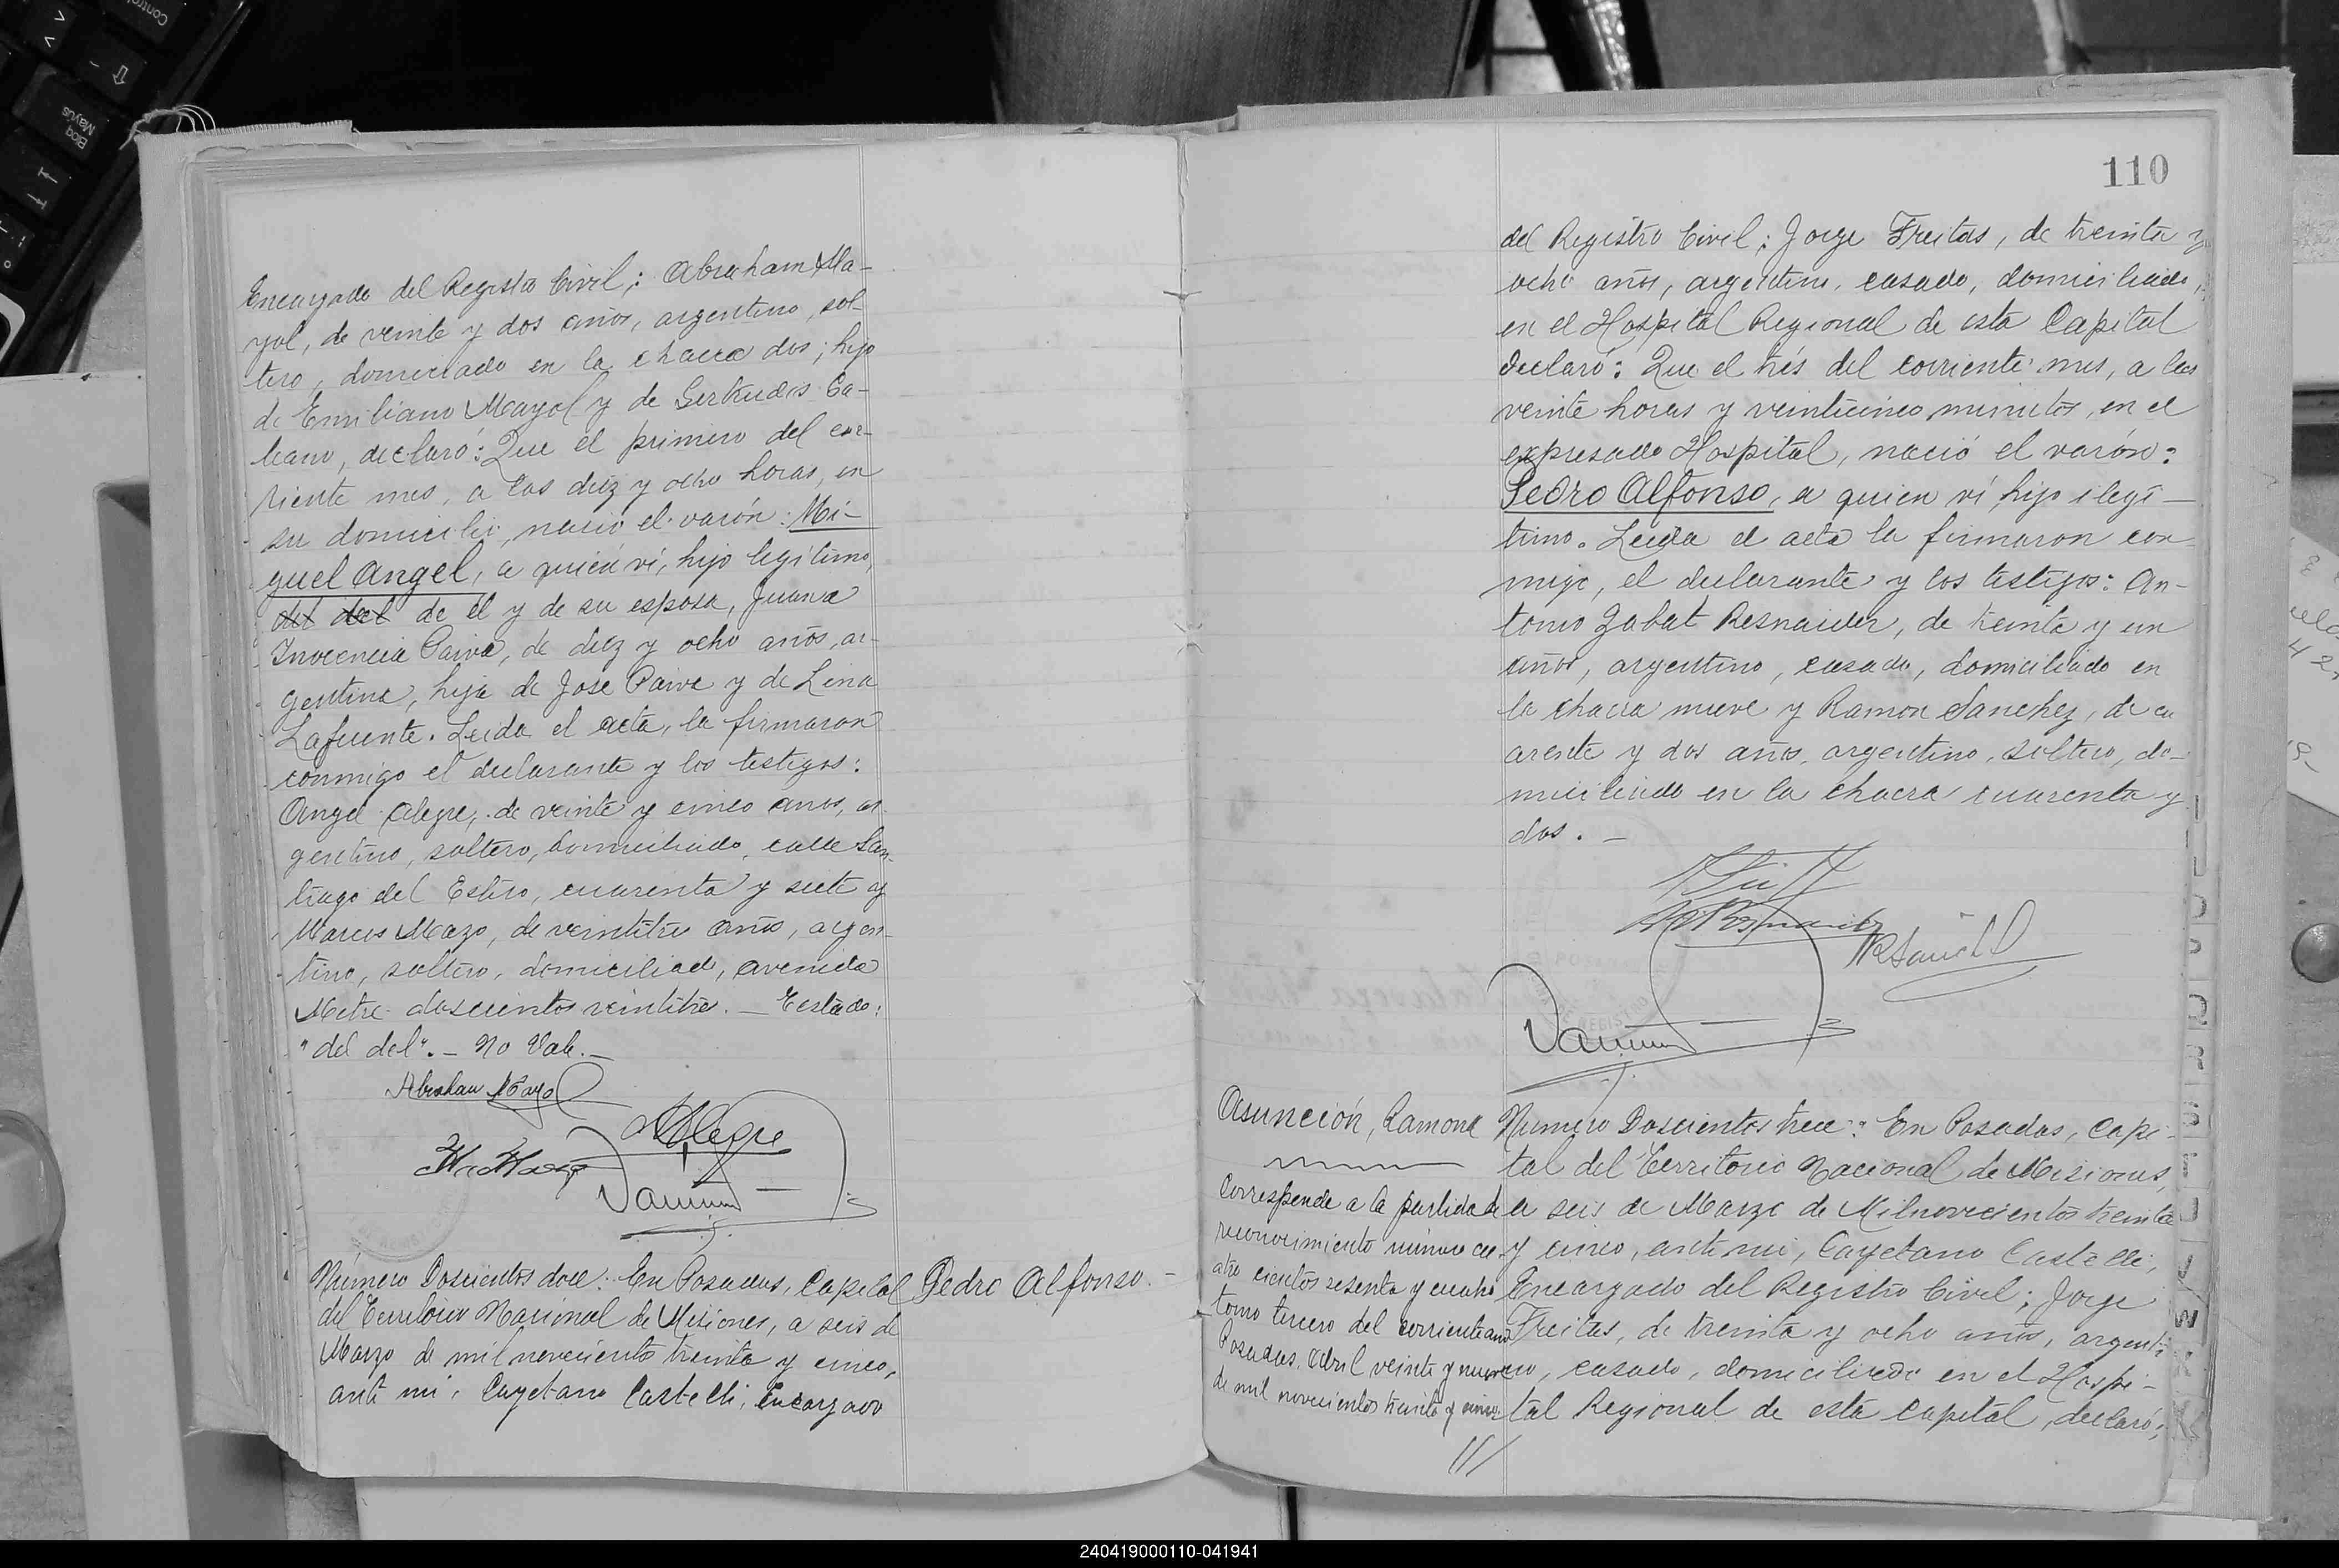 Encargado del Registro Civil; Abraham Ma-
yol, de veinte y dos años, argentino, sol-
tero, domiciliado en la chacra dos; hijo
de Emiliano Mayol y de Gertrudis Ga-
leano, declaró: Que el primero del cor-
riente mes, a las diez y ocho horas, en
su domicilio, nació el varón: Mi-
guel Angel, a quien ví, hijo legítimo,
del del de él y de su esposa, Juana
Inocencia Paiva, de diez y ocho años, ar-
gentina, hija de José Paiva y de Lina
Lafuente. Leida el acta, la firmaron
conmigo el declarante y los testigos:
Angel Alegre, de veinte y cinco años, ar-
gentino, soltero, domiciliado, calle San-
tiago del Estero, cuarenta y siete y
Marcos Mazo, de veintitrés años, argen-
tino, soltero, domiciliado, avenida
Mitre doscientos veintitrés. — Testado:
"del del". — No Vale. —
Abraham Mayol
A Alegre
Número Doscientos doce: En Posadas, Capital
del Territorio Nacional de Misiones, a seis de
Marzo de mil novecientos treinta y cinco,
ante mí, Cayetano Castelli, Encargado
Pedro Alfonso. —
110
del Registro Civil; Jorge Freitas, de treinta y
ocho años, argentino, casado, domiciliado,
en el Hospital Regional de esta Capital
declaró: Que el trés del corriente mes, a las
veinte horas y veinticinco minutos, en el
expresado Hospital, nació el varón:
Pedro Alfonso, a quien ví, hijo ilegí-
timo. Leida el acta la firmaron con
migo, el declarante y los testigos: An-
tonio Zabat Resnaider, de treinta y un
años, argentino, casado, domiciliado en
la chacra nueve y Ramon Sanchez, de cu
arenta y dos años, argentino, soltero, do-
miciliado en la chacra cuarenta y
dos. —
Asunción, Ramona
Corresponde a la partida de
reconocimiento número cu-
atro cientos sesenta y cuatro
tomo tercero del corriente año
Posadas, Abril veinte y nueve
de mil novecientos treinta y cinco
Número Doscientos trece: En Posadas, Capi-
tal del Territorio Nacional de Misiones,
a seis de Marzo de Milnovecientos treinta
y cinco, ante mí, Cayetano Castelli,
Encargado del Registro Civil; Jorge
Freitas, de treinta y ocho años, argenti-
no, casado, domiciliado en el Hospi-
tal Regional de esta capital, declaró;
240419000110-041941